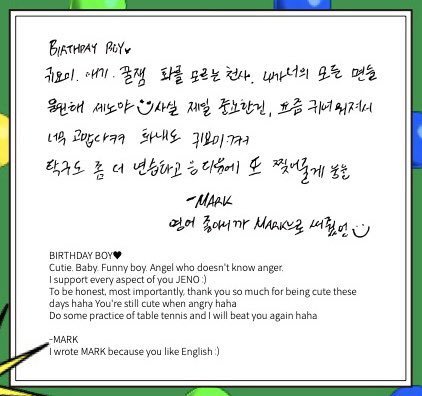 BIRTHDAY BOY♥
귀요미. 애기. 꿀잼 화를 모르는 천사. 내가 너의 모든 면을
응원해 제노야 :) 사실 제일 중요한건, 요즘 귀여워져서
너무 고맙다ㅋㅋ 화내도 귀요미ㅋㅋ
탁구도 좀 더 연습하고 다음에 또 찢어줄게
-MARK
영어 좋아하니까 MARK으로 :)
BIRTHDAY BOY♥
Cutie. Baby. Funny boy. Angel who doesn't know anger.
I support every aspect of you JENO :)
To be honest, most importantly, thank you so much for being cute these
days haha You're still cute when angry haha
Do some practice of table tennis and I will beat you again haha
-MARK
I wrote MARK because you like English :)